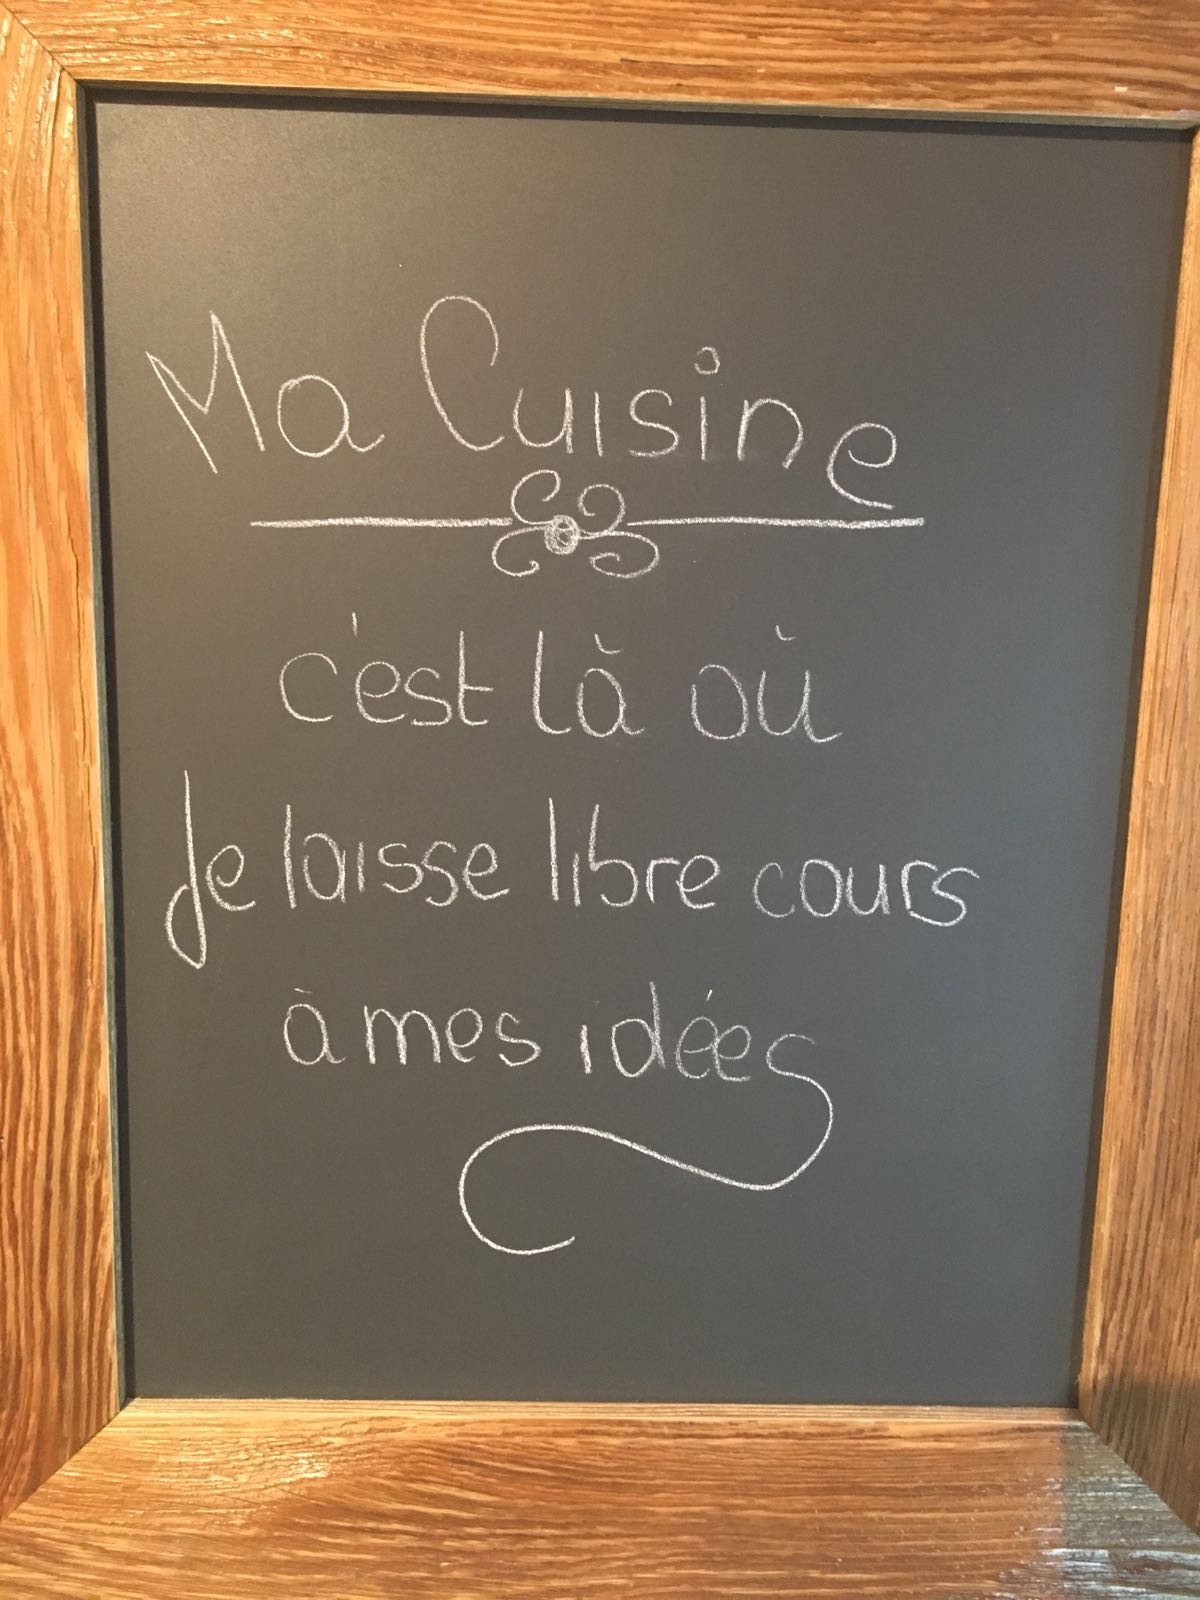 Ma Cuisine
c'est là où
Je laisse libre cours
à mes idées